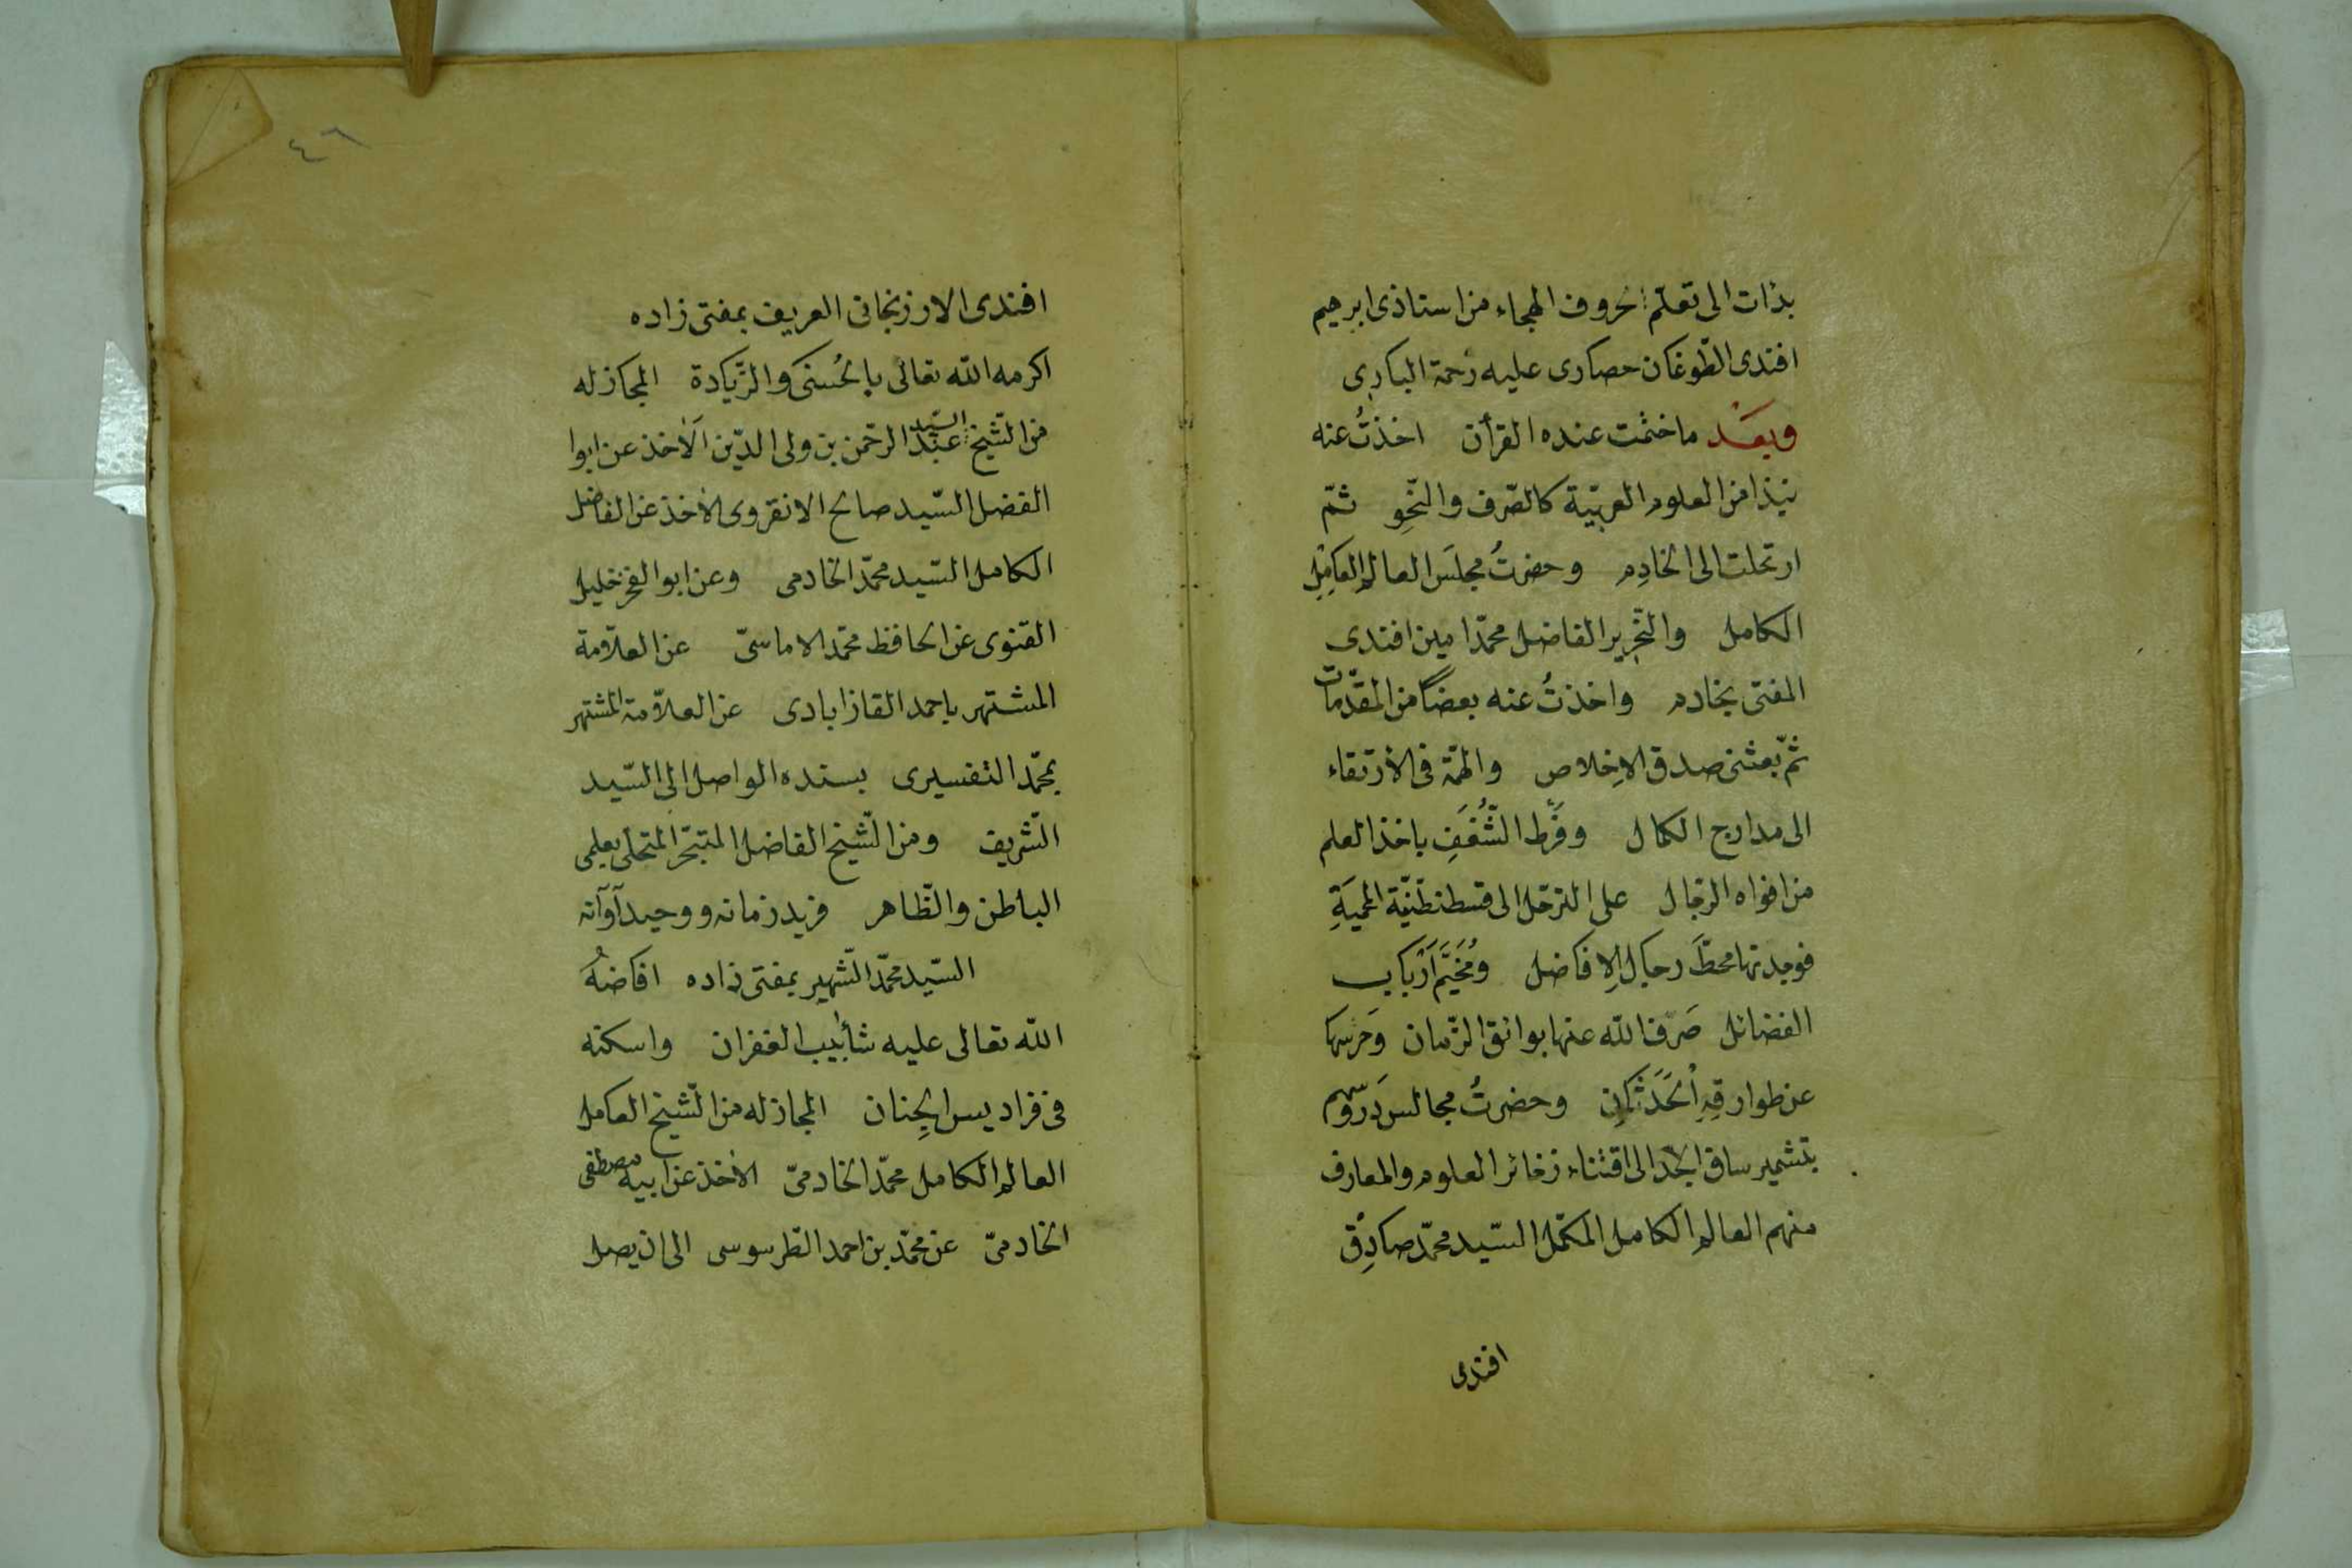 بدات الى تعلّم الحروف الهجاء من استاذى ابرهيم
افندى الطّوغان حصارى عليه رحمة البارى
وبعد ما ختمت عنده القرأن اخذتُ عنه
نبذا من العلوم العربيّة كالصّرف والنّحو ثمّ
ارتحلت الى الخادم وحضرتُ مجلسَ العالم العامل
الكامل والنّحرير الفاضل محمّد امين افندى
المفتى بخادم واخذتُ عنه بعضاً من المقدّمات
ثمّ بعثنى صدق الاِخلاص والهمّة فى الأرتقاء
الى مدارج الكمال وفَرط الشّغفِ باخذ العلم
من افواه الرّجال على الترحّل الى قسطنطنيّة المحميّةِ
فوجدتها محطّ رحال الافاضل ومُخَيَّم اَرْباب
الفضائل صَرّف اللّه عنها بوائق الزّمان وَحَرسها
عن طوارقِهِ الحَدَثان وحضرتُ مجالس دروسهم
بتشمير ساق الجدّ الى اقتناء زخائر العلوم والمعارف
منهم العالم الكامل المكمّل السّيد محمّد صادق
افندى
٤٦
افندى الارزنجانى العريف بمفتى زاده
اكرمه اللّه تعالى بالحُسنى والزّيادة المجاز له
من الشّيخ السّيد عبد الرحمن بن ولى الدّين الاٰخذ عن ابوا
الفضل السّيد صالح الانقروى الاٰخذ عن الفاضل
الكامل السّيد محمّد الخادمى وعن ابو الفخر خليل
القنوى عن الحافظ محمّد الاماسىّ عن العلاّمة
المشتهر باحمد القازابادى عن العلاّمة المشتهر
بمحمّد التفسيرى بسنده الواصل الى السّيد
الشّريف ومن الشّيخ الفاضل المتبحّر المتحلّى بعلمى
الباطن والظّاهر فريد زمانه ووحيد آوآنه
السّيد محمّد الشّهير بمفتى زاده افاضهُ
اللّه تعالى عليه شأبيب الغفران واسكنه
فى فراديس الجِنان المجاز له من الشّيخ العامل
العالم الكامل محمّد الخادمىّ الاٰخذ عن ابيه مصطفى
الخادمىّ عن محمّد بن احمد الطرسوسى الى ان يصل